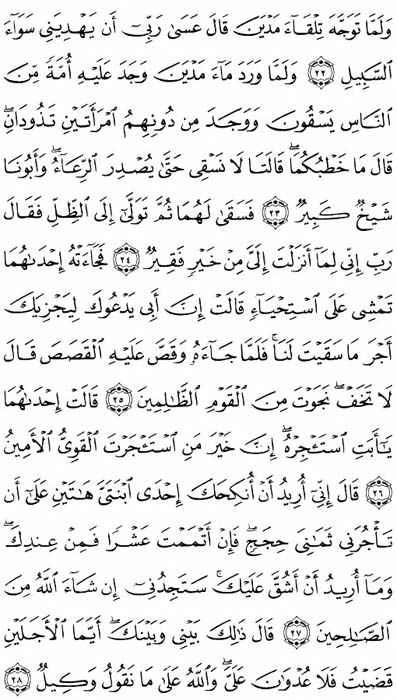 وَلَمَّا تَوَجَّهَ تِلْقَآءَ مَدْيَنَ قَالَ عَسَىٰ رَبِّىٓ أَن يَهْدِيَنِى سَوَآءَ
ٱلسَّبِيلِ ٢٢ وَلَمَّا وَرَدَ مَآءَ مَدْيَنَ وَجَدَ عَلَيْهِ أُمَّةً مِّنَ
ٱلنَّاسِ يَسْقُونَ وَوَجَدَ مِن دُونِهِمُ ٱمْرَأَتَيْنِ تَذُودَانِۖ
قَالَ مَا خَطْبُكُمَاۖ قَالَتَا لَا نَسْقِى حَتَّىٰ يُصْدِرَ ٱلرِّعَآءُۖ وَأَبُونَا
شَيْخٌ كَبِيرٌ ٢٣ فَسَقَىٰ لَهُمَا ثُمَّ تَوَلَّىٰٓ إِلَى ٱلظِّلِّ فَقَالَ
رَبِّ إِنِّى لِمَآ أَنزَلْتَ إِلَىَّ مِنْ خَيْرٍ فَقِيرٌ ٢٤ فَجَآءَتْهُ إِحْدَىٰهُمَا
تَمْشِى عَلَى ٱسْتِحْيَآءٍ قَالَتْ إِنَّ أَبِى يَدْعُوكَ لِيَجْزِيَكَ
أَجْرَ مَا سَقَيْتَ لَنَاۚ فَلَمَّا جَآءَهُۥ وَقَصَّ عَلَيْهِ ٱلْقَصَصَ قَالَ
لَا تَخَفْۖ نَجَوْتَ مِنَ ٱلْقَوْمِ ٱلظَّٰلِمِينَ ٢٥ قَالَتْ إِحْدَىٰهُمَا
يَٰٓأَبَتِ ٱسْتَـْٔجِرْهُۖ إِنَّ خَيْرَ مَنِ ٱسْتَـْٔجَرْتَ ٱلْقَوِىُّ ٱلْأَمِينُ
٢٦ قَالَ إِنِّىٓ أُرِيدُ أَنْ أُنكِحَكَ إِحْدَى ٱبْنَتَىَّ هَٰتَيْنِ عَلَىٰٓ أَن
تَأْجُرَنِى ثَمَٰنِىَ حِجَجٍۖ فَإِنْ أَتْمَمْتَ عَشْرًا فَمِنْ عِندِكَۖ
وَمَآ أُرِيدُ أَنْ أَشُقَّ عَلَيْكَۚ سَتَجِدُنِىٓ إِن شَآءَ ٱللَّهُ مِنَ
ٱلصَّٰلِحِينَ ٢٧ قَالَ ذَٰلِكَ بَيْنِى وَبَيْنَكَۖ أَيَّمَا ٱلْأَجَلَيْنِ
قَضَيْتُ فَلَا عُدْوَٰنَ عَلَىَّۖ وَٱللَّهُ عَلَىٰ مَا نَقُولُ وَكِيلٌ ٢٨